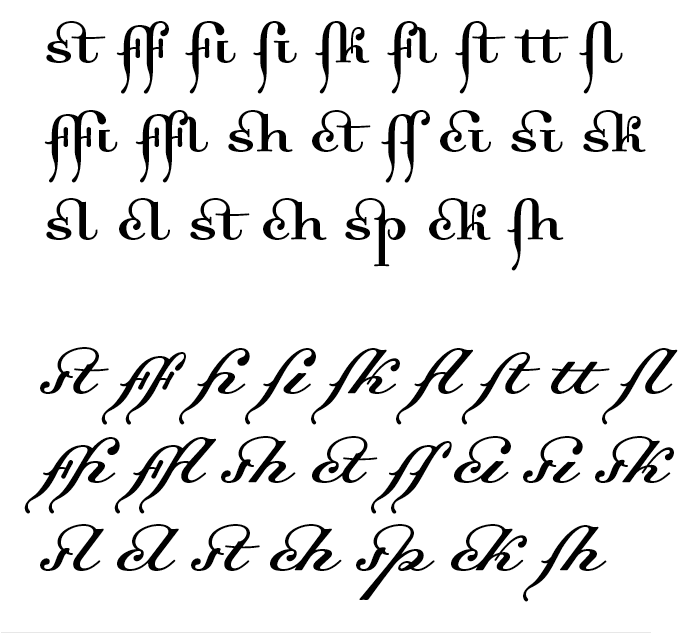 st ff fi ſi ſk fl ſt tt ſl
ffi ffl sh ct ſſ ci si sk
sl cl st ch sp ck ſh
st ff fi ſi ſk fl ſt tt ſl
ffi ffl sh ct ſſ ci si sk
sl cl st ch sp ck ſh